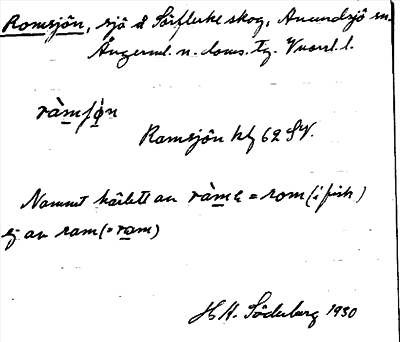 Romsjön, sjö å Sörflerke skog, Anundsjö sn.
Ångerml. n. doms. tg. Vnorrl. l.
ràmʃø̀n
Romsjön kbl 62 SV.
Namnet härlett av ràmɛ = rom (i fisk)
ej av ram (= ram)
H. Söderberg 1930